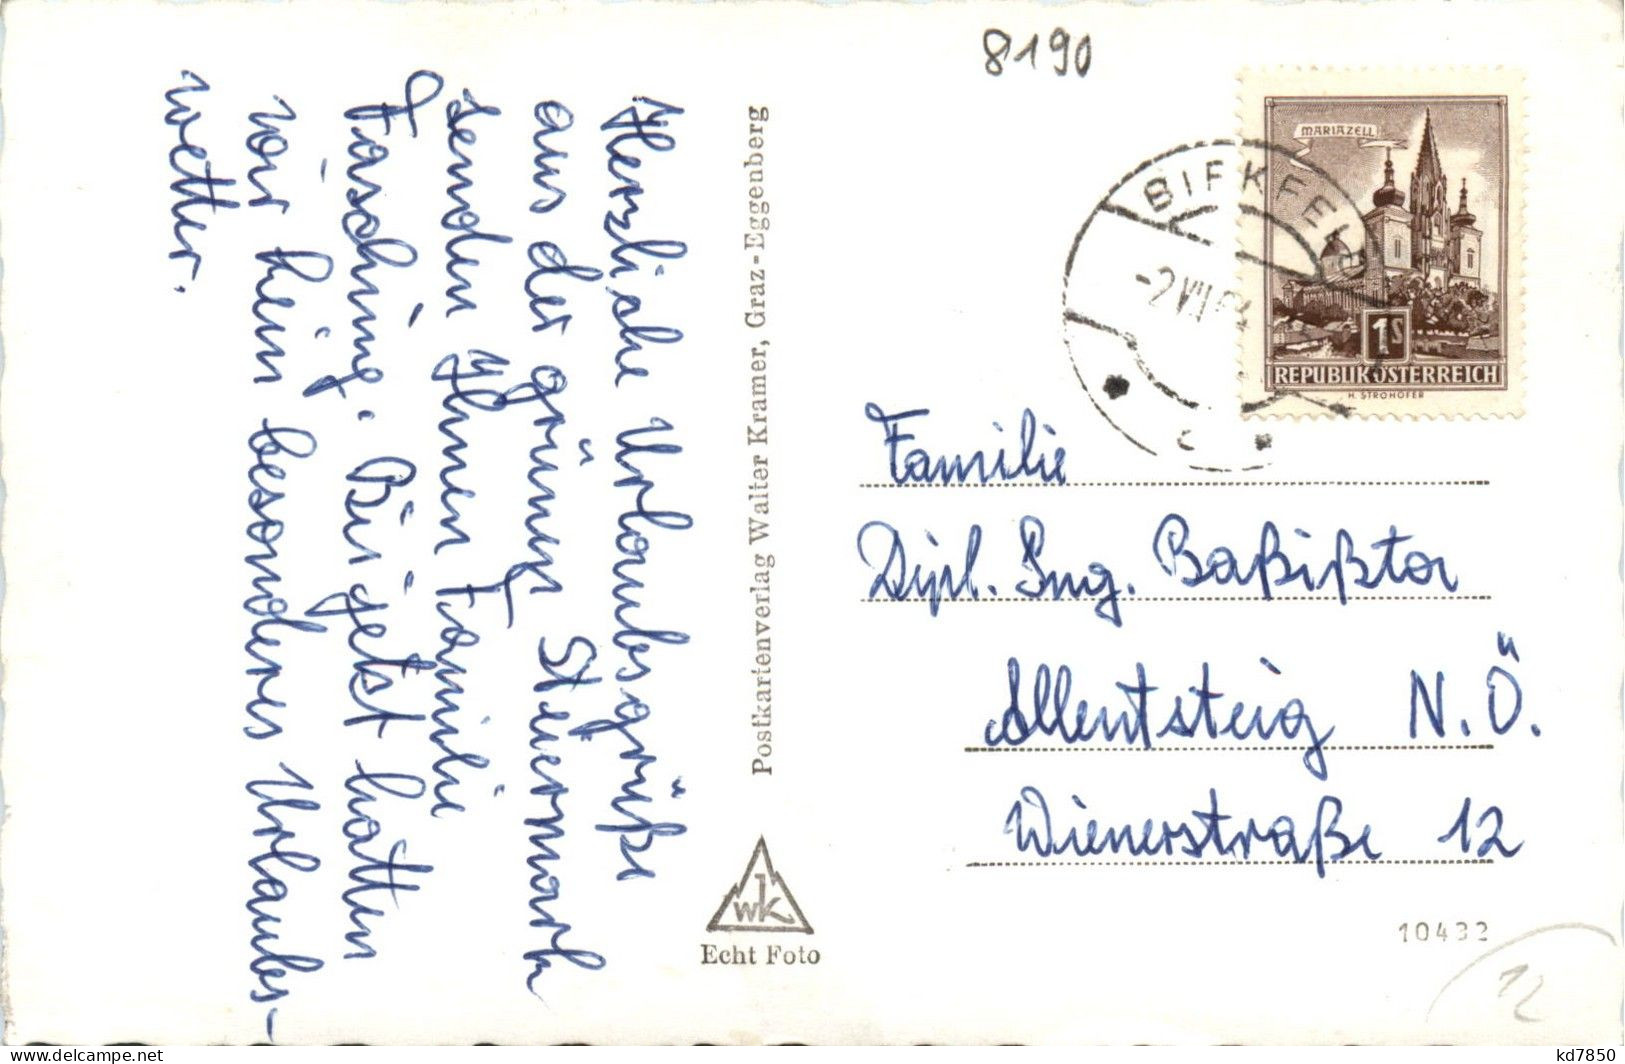 8190
MARIAZELL
BIRKFELD
-2.VII.
1S
REPUBLIK ÖSTERREICH
H. STROHOFER
Herzliche Urlaubsgrüße
aus der grünen Steiermark
senden Ihnen Familie
Fasching. Bis jetzt hatten
wir kein besonderes Urlaubs-
wetter.
Postkartenverlag Walter Kramer, Graz-Eggenberg
WK
Echt Foto
Familie
Dipl. Ing. Baßißtor
Allentsteig N.Ö.
Wienerstraße 12
10432
12
kd7850